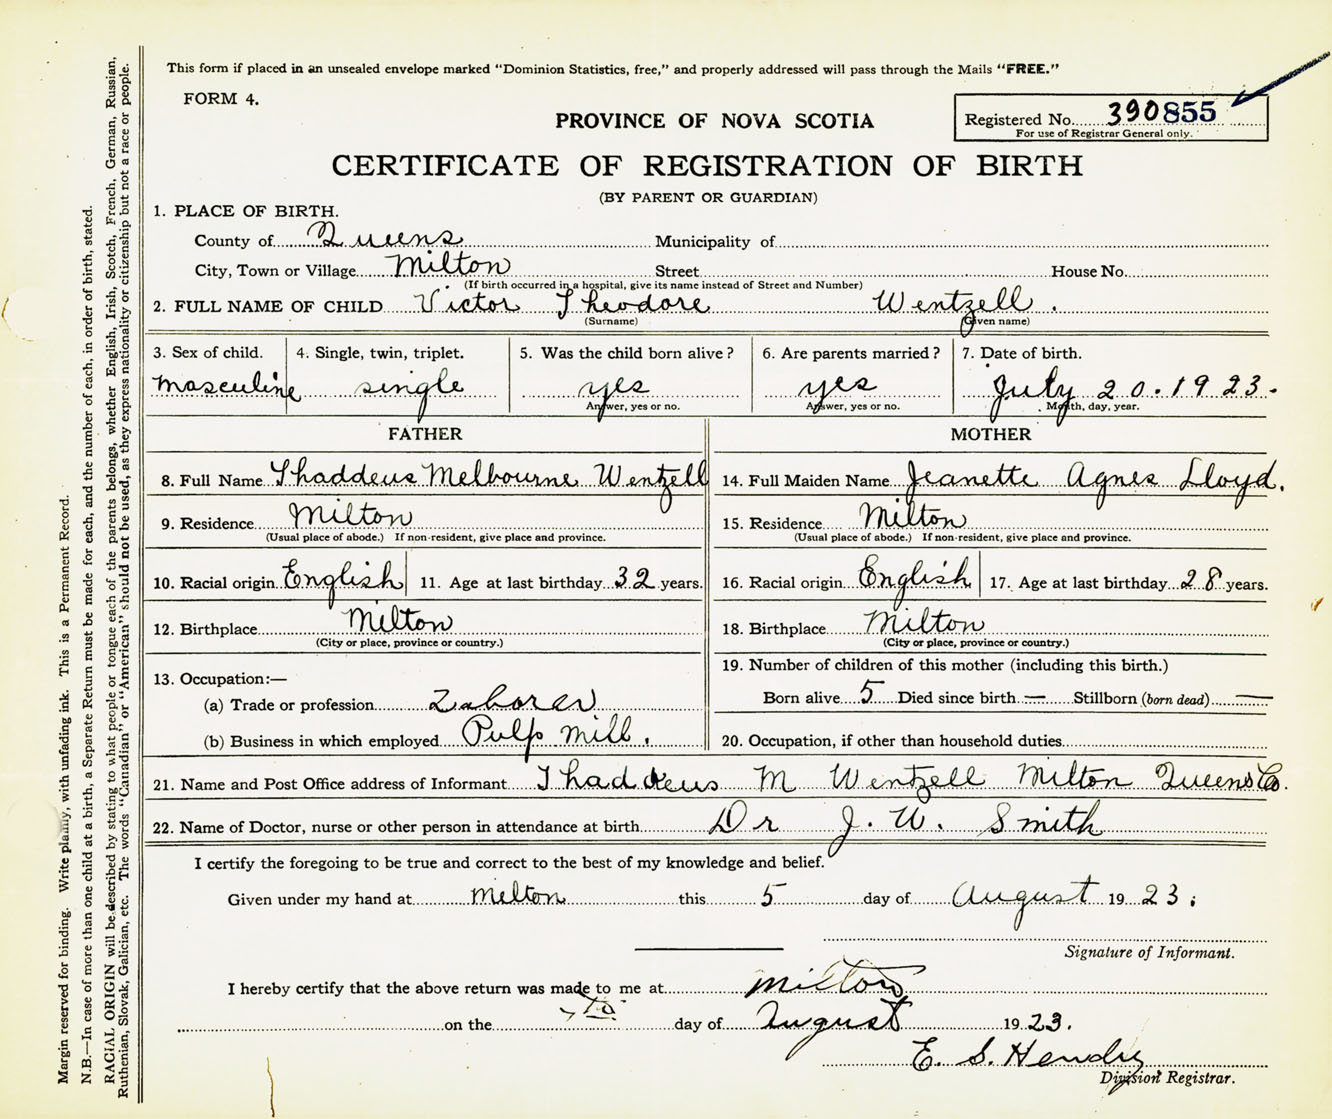 This form if placed in an unsealed envelope marked “Dominion Statistics, free,” and properly addressed will pass through the Mails “FREE.”
FORM 4.
Registered No. 390855
For use of Registrar General only.
PROVINCE OF NOVA SCOTIA
CERTIFICATE OF REGISTRATION OF BIRTH
(BY PARENT OR GUARDIAN)
1. PLACE OF BIRTH.
County of Queens Municipality of
City, Town or Village Milton Street House No.
(If birth occurred in a hospital, give its name instead of Street and Number)
2. FULL NAME OF CHILD Victor Theodore Wentzell.
(Surname) (Given name)
3. Sex of child. 4. Single, twin, triplet. 5. Was the child born alive? 6. Are parents married? 7. Date of birth.
masculine single yes yes July 20. 1923.
Answer, yes or no. Answer, yes or no. Month, day, year.
FATHER
8. Full Name Thaddeus Melbourne Wentzell
9. Residence Milton
(Usual place of abode.) If non-resident, give place and province.
10. Racial origin English 11. Age at last birthday 32 years.
12. Birthplace Milton
(City or place, province or country.)
13. Occupation:—
(a) Trade or profession Laborer
(b) Business in which employed Pulp mill.
MOTHER
14. Full Maiden Name Jeanette Agnes Lloyd.
15. Residence Milton
(Usual place of abode.) If non-resident, give place and province.
16. Racial origin English 17. Age at last birthday 28 years.
18. Birthplace Milton
(City or place, province or country.)
19. Number of children of this mother (including this birth.)
Born alive 5 Died since birth — Stillborn (born dead) —
20. Occupation, if other than household duties
21. Name and Post Office address of Informant Thaddeus M Wentzell Milton Queens Co.
22. Name of Doctor, nurse or other person in attendance at birth Dr J. W. Smith
I certify the foregoing to be true and correct to the best of my knowledge and belief.
Given under my hand at Milton this 5 day of August 1923.
Signature of Informant.
I hereby certify that the above return was made to me at Milton
on the day of August 1923.
E. S. Hendry
Division Registrar.
Margin reserved for binding. Write plainly, with unfading ink. This is a Permanent Record.
N.B.—In case of more than one child at a birth, a Separate Return must be made for each, and the number of each, in order of birth, stated.
RACIAL ORIGIN will be described by stating to what people or tongue each of the parents belongs, whether English, Irish, Scotch, French, German, Russian,
Ruthenian, Slovak, Galician, etc. The words “Canadian” or “American” should not be used, as they express nationality or citizenship but not a race or people.